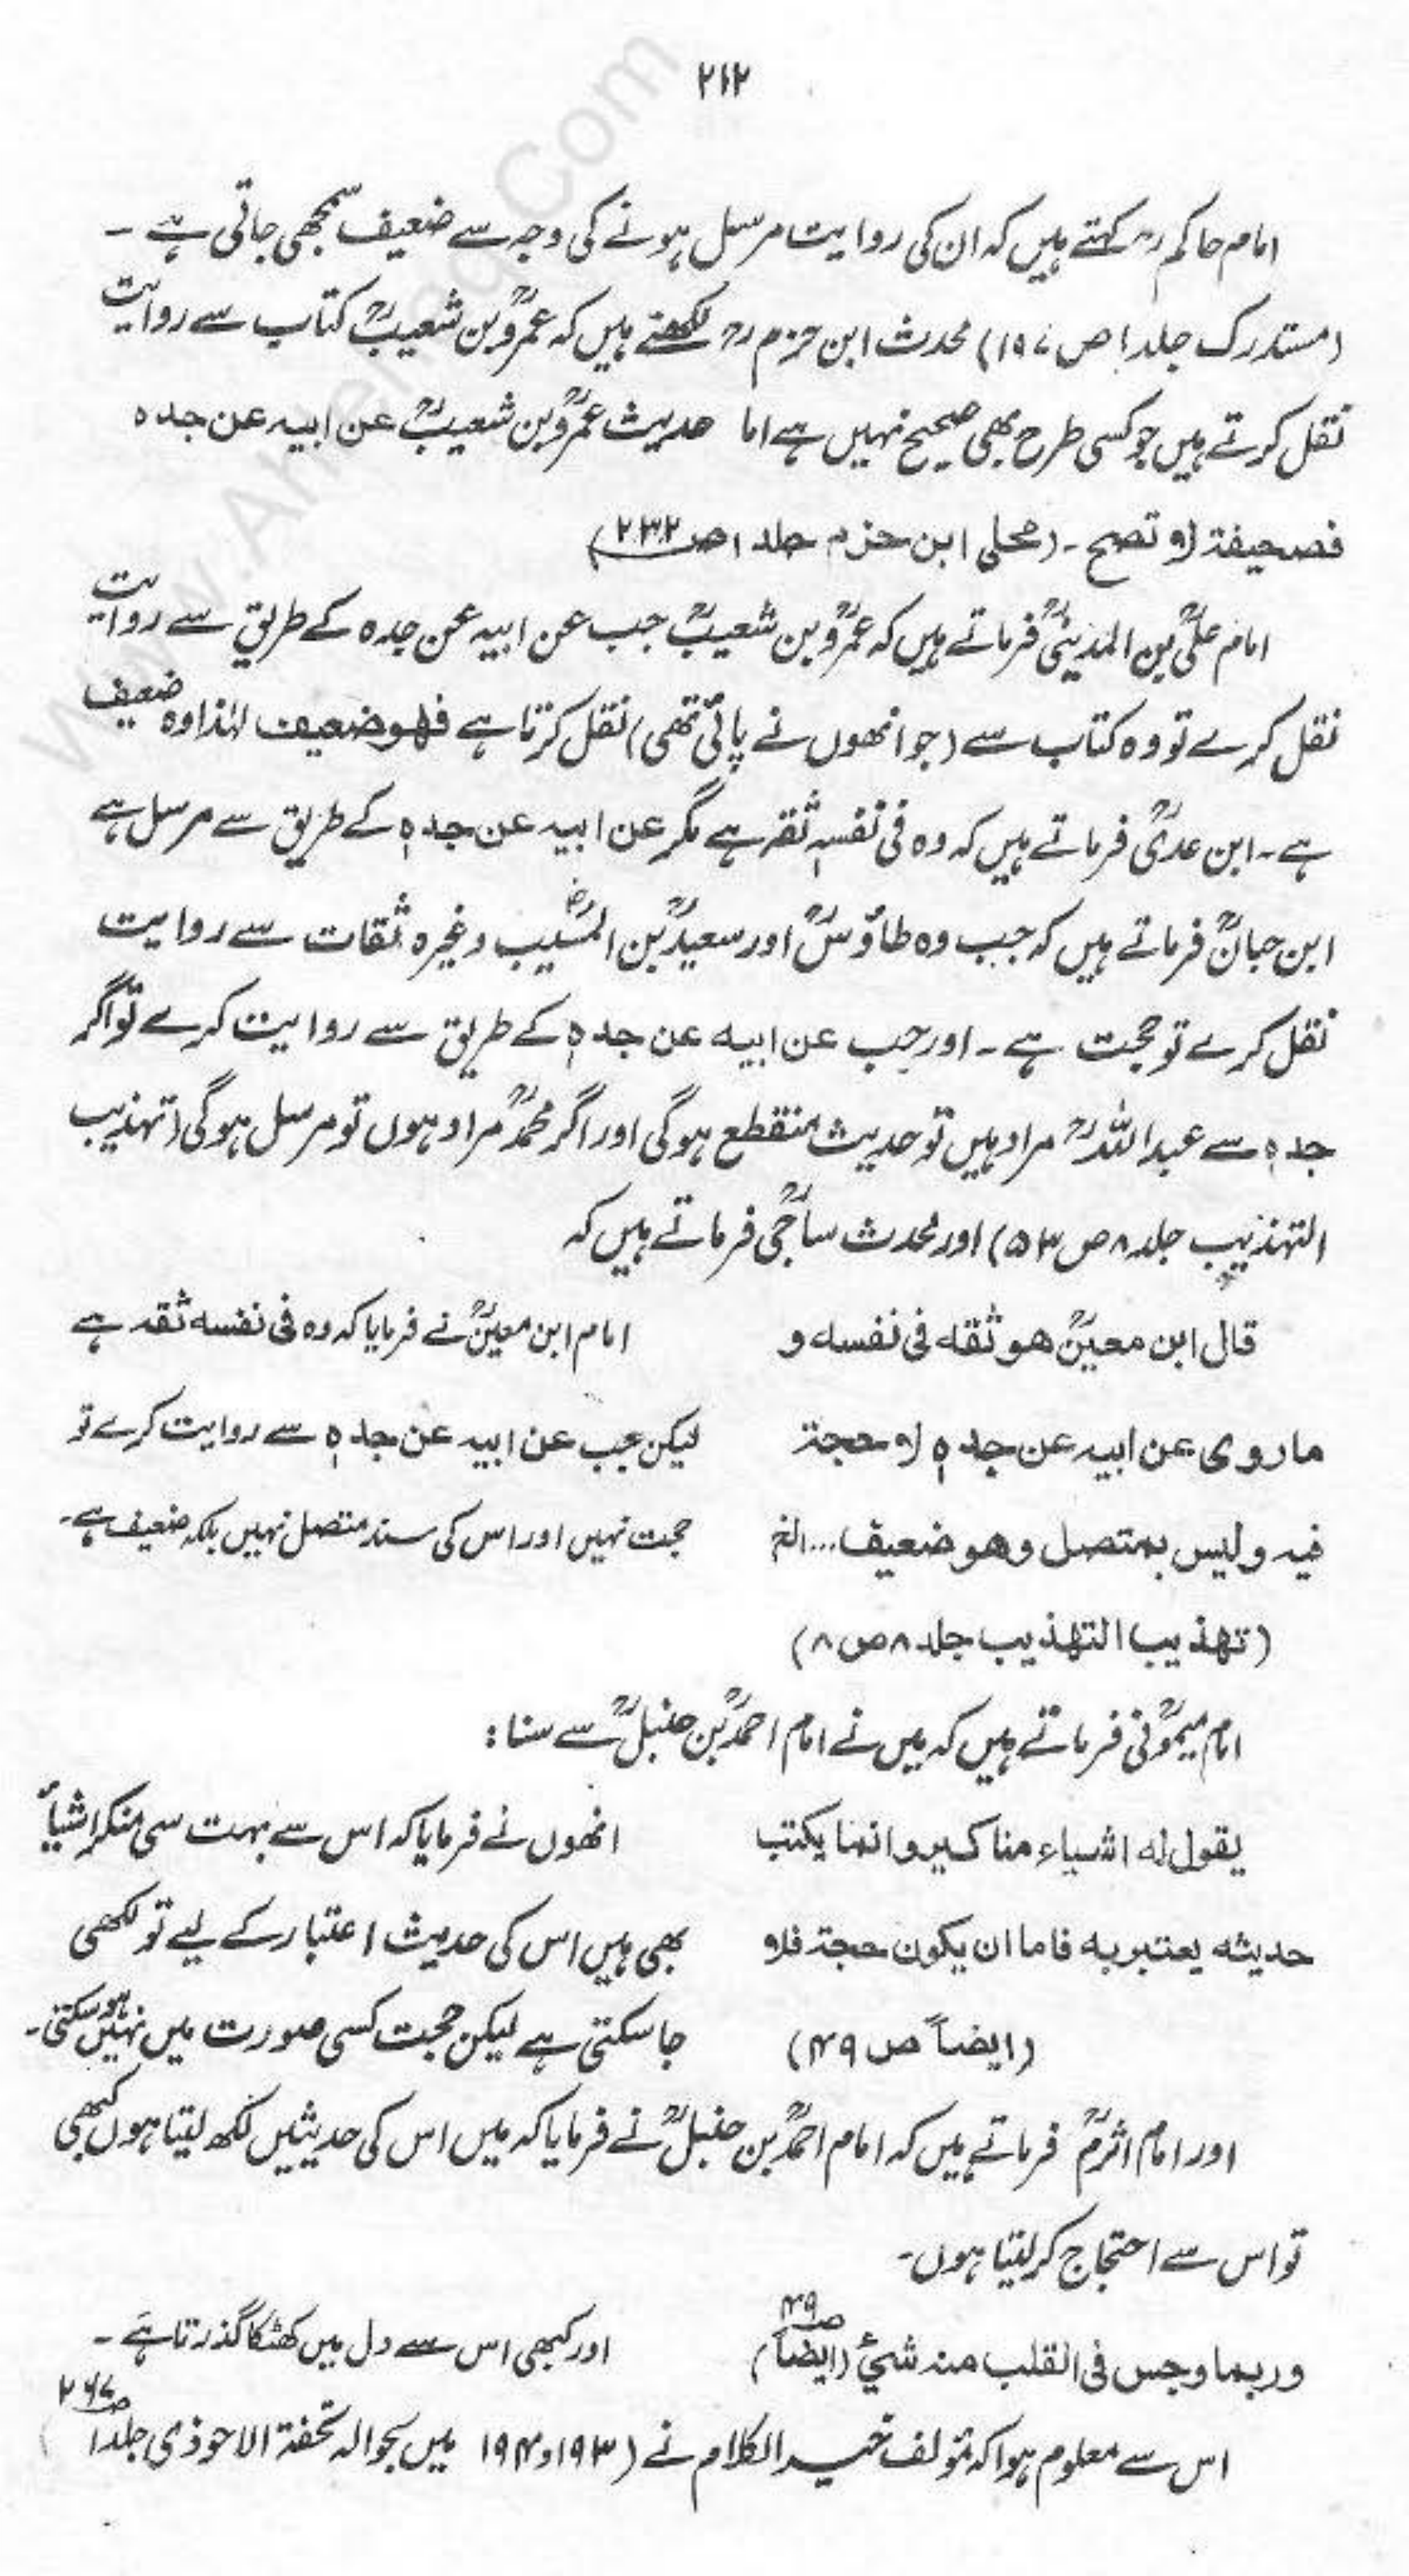 ۲۱۲
امام حاکم رح کہتے ہیں کہ ان کی روایت مرسل ہونے کی وجہ سے ضعیف سمجھی جاتی ہے ۔
(مستدرک جلد ۱ ص ۱۹۷) محدث ابن حزم رح لکھتے ہیں کہ عمروؒ بن شعیبؒ کتاب سے روایت
نقل کرتے ہیں جو کسی طرح بھی صحیح نہیں ہے اما حدیث عمروؒ بن شعیبؒ عن ابیہ عن جدہ
فصحیفۃ لا تصح ۔ (محلی ابن حزم جلد ۱ ص ۲۳۲)
امام علیؒ بن المدینیؒ فرماتے ہیں کہ عمروؒ بن شعیبؒ جب عن ابیہ عن جدہ کے طریق سے روایت
نقل کرے تو وہ کتاب سے (جو انھوں نے پائی تھی) نقل کرتا ہے فھو ضعیف لہٰذا وہ ضعیف
ہے ۔ ابن عدیؒ فرماتے ہیں کہ وہ فی نفسہٖ ثقہ ہے مگر عن ابیہ عن جدہٖ کے طریق سے مرسل ہے
ابن حبانؒ فرماتے ہیں کہ جب وہ طاؤسؒ اور سعیدؒ بن المسیبؒ وغیرہ ثقات سے روایت
نقل کرے تو حجت ہے ۔ اور جب عن ابیہ عن جدہٖ کے طریق سے روایت کرے تو اگر
جدہٖ سے عبداللہؒ مراد ہیں تو حدیث منقطع ہوگی اور اگر محمدؒ مراد ہوں تو مرسل ہوگی (تہذیب
التہذیب جلد ۸ ص ۵۳) اور محدث ساجیؒ فرماتے ہیں کہ
قال ابن معینؒ ھو ثقہ فی نفسہ و امام ابن معینؒ نے فرمایا کہ وہ فی نفسہ ثقہ ہے
ما روی عن ابیہ عن جدہٖ لا حجۃ لیکن جب عن ابیہ عن جدہٖ سے روایت کرے تو
فیہ ولیس بمتصل وھو ضعیف... الخ حجت نہیں اور اس کی سند متصل نہیں بلکہ ضعیف ہے ۔
(تھذیب التھذیب جلد ۸ ص ۸)
امام میمونیؒ فرماتے ہیں کہ میں نے امام احمدؒ بن حنبلؒ سے سنا :
یقول لہ اشیاء مناکیر وانما یکتب انھوں نے فرمایا کہ اس سے بہت سی منکر اشیاءٌ
حدیثہ یعتبر بہ فاما ان یکون حجۃ فلا بھی ہیں اس کی حدیث اعتبار کے لیے تو لکھی
(ایضاً ص ۴۹) جا سکتی ہے لیکن حجت کسی صورت میں نہیں ہو سکتی ۔
اور امام اثرمؒ فرماتے ہیں کہ امام احمدؒ بن حنبلؒ نے فرمایا کہ میں اس کی حدیثیں لکھ لیتا ہوں کبھی
تو اس سے احتجاج کر لیتا ہوں ۔
وربما وجس فی القلب منہ شیٔ (ایضاً ص ۴۹) اور کبھی اس سے دل میں کھٹکا گذرتا ہے ۔
اس سے معلوم ہوا کہ مؤلف خیر الکلام نے (۱۹۳ و ۱۹۴ میں بحوالہ تحفۃ الاحوذی جلد ۱ ص ۲۶۷)